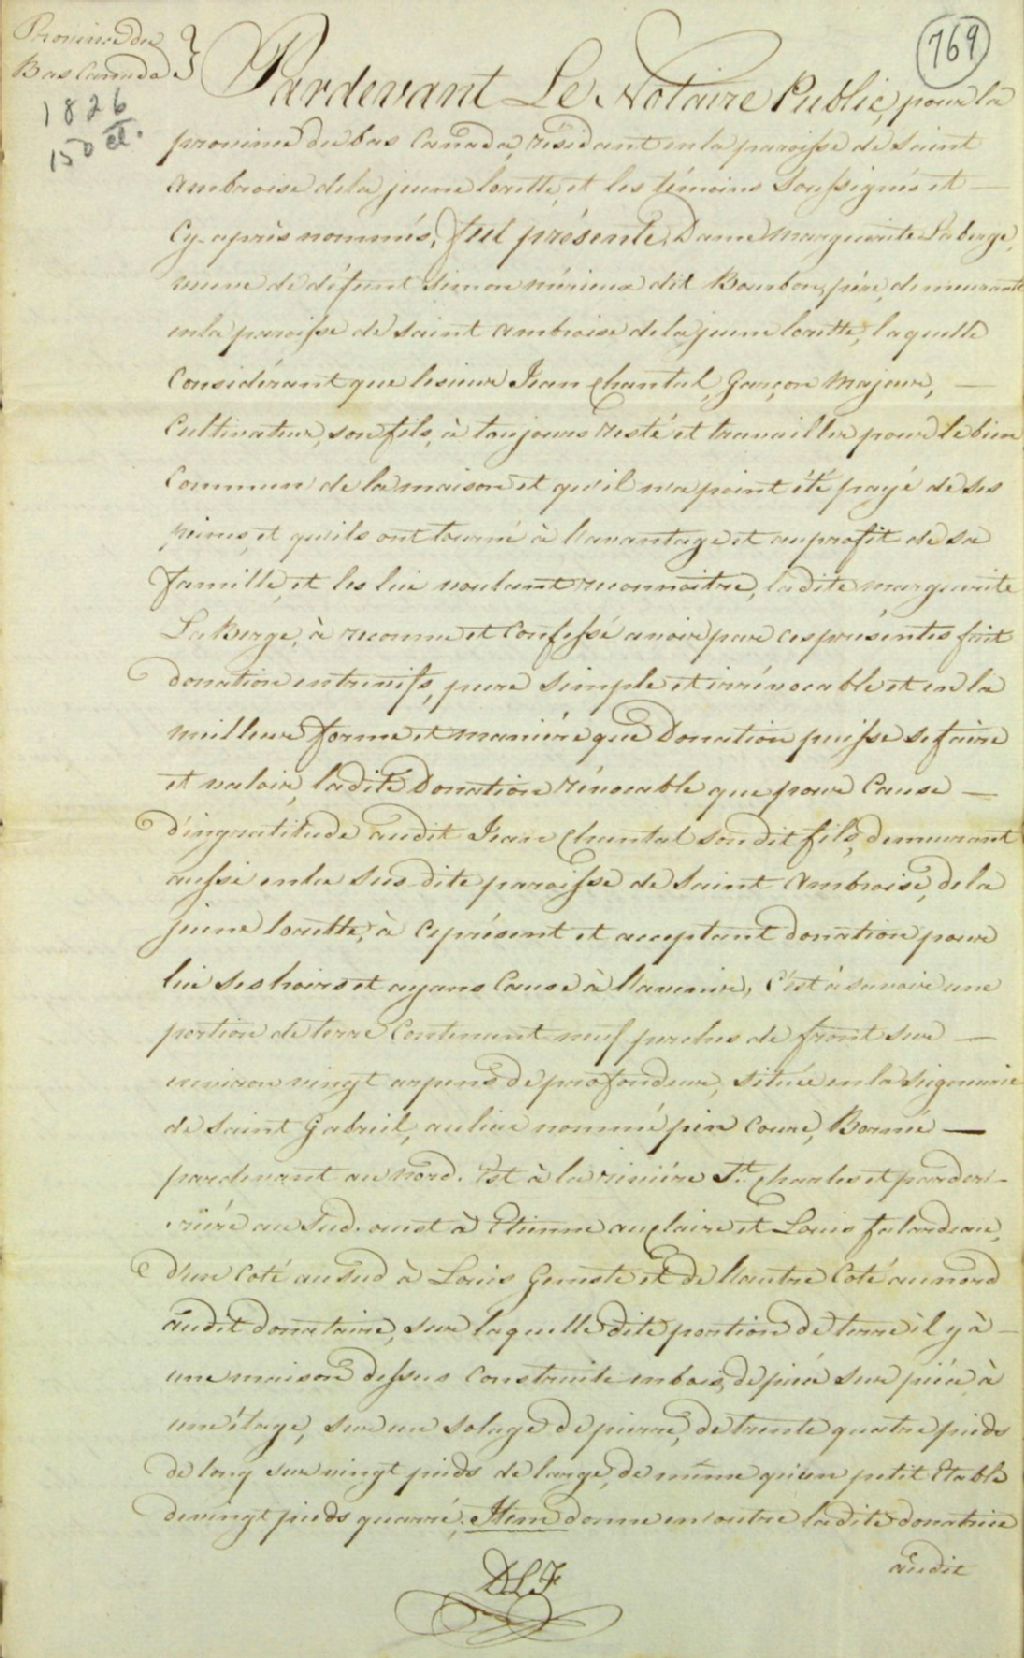 Province du
Bas Canada }
769
1826
150 ct.
Pardevant Le Notaire Public, pour la
province du bas Canada, résidant en la paroisse de Saint
Ambroise de la jeune lorette, et les témoins Soussignés et —
Cy-après nommés, fut présente, Dame Marguerite Laberge,
veuve de défunt Simon mérieux dit Bourbon, père, demeurante
en la paroisse de Saint Ambroise de la jeune lorette, laquelle
Considérant que le sieur Jean Chantal, Garçon Majeur, —
Cultivateur, son fils, à toujours resté et travailler pour le bien
Commun de la maison et qu'il n'a point été payé de ses
peines, et qu'ils ont tourné à l'avantage et au profit de sa
famille, et les lui voulant reconnoitre, ladite marguerite
LaBerge, à reconnu et Confessé avoir par ces présentes fait
donation entrevifs, pure Simple et irrévocable et en la
meilleure forme et manière que Donation puisse se faire
et valoir, ladite Donation révocable que pour Cause —
d'ingratitude audit Jean Chantal son dit fils, demeurant
aussi en la sus-dite paroisse de Saint Ambroise, de la
jeune lorette, à Ceprésent et acceptant donation pour
lui ses hoirs et ayans Cause à l'avenir, C'est à savoir une
portion de terre Contenant neuf perches de front sur —
environ vingt arpens de profondeur, située en la Seigneurie
de Saint Gabriel, au lieu nommé pin Couré, Bornée —
pardevant au Nord-Est à la rivière St. Charles et parder-
rière au Sud-ouest à Etienne auclaire et Louis falardeau,
d'un Coté au Sud à Louis Geneste et de l'autre Coté au nord
audit donataire, sur laquelle dite portion de terre il y à —
une maison dessus Construite en bois, de pièce sur pièce, à
un étage, sur un solage de pierre, de trente quatre pieds
de long sur vingt pieds de large, de même qu'un petit Etable
de vingt pieds quarré; Item donne en outre ladite donatrice
audit
DLF